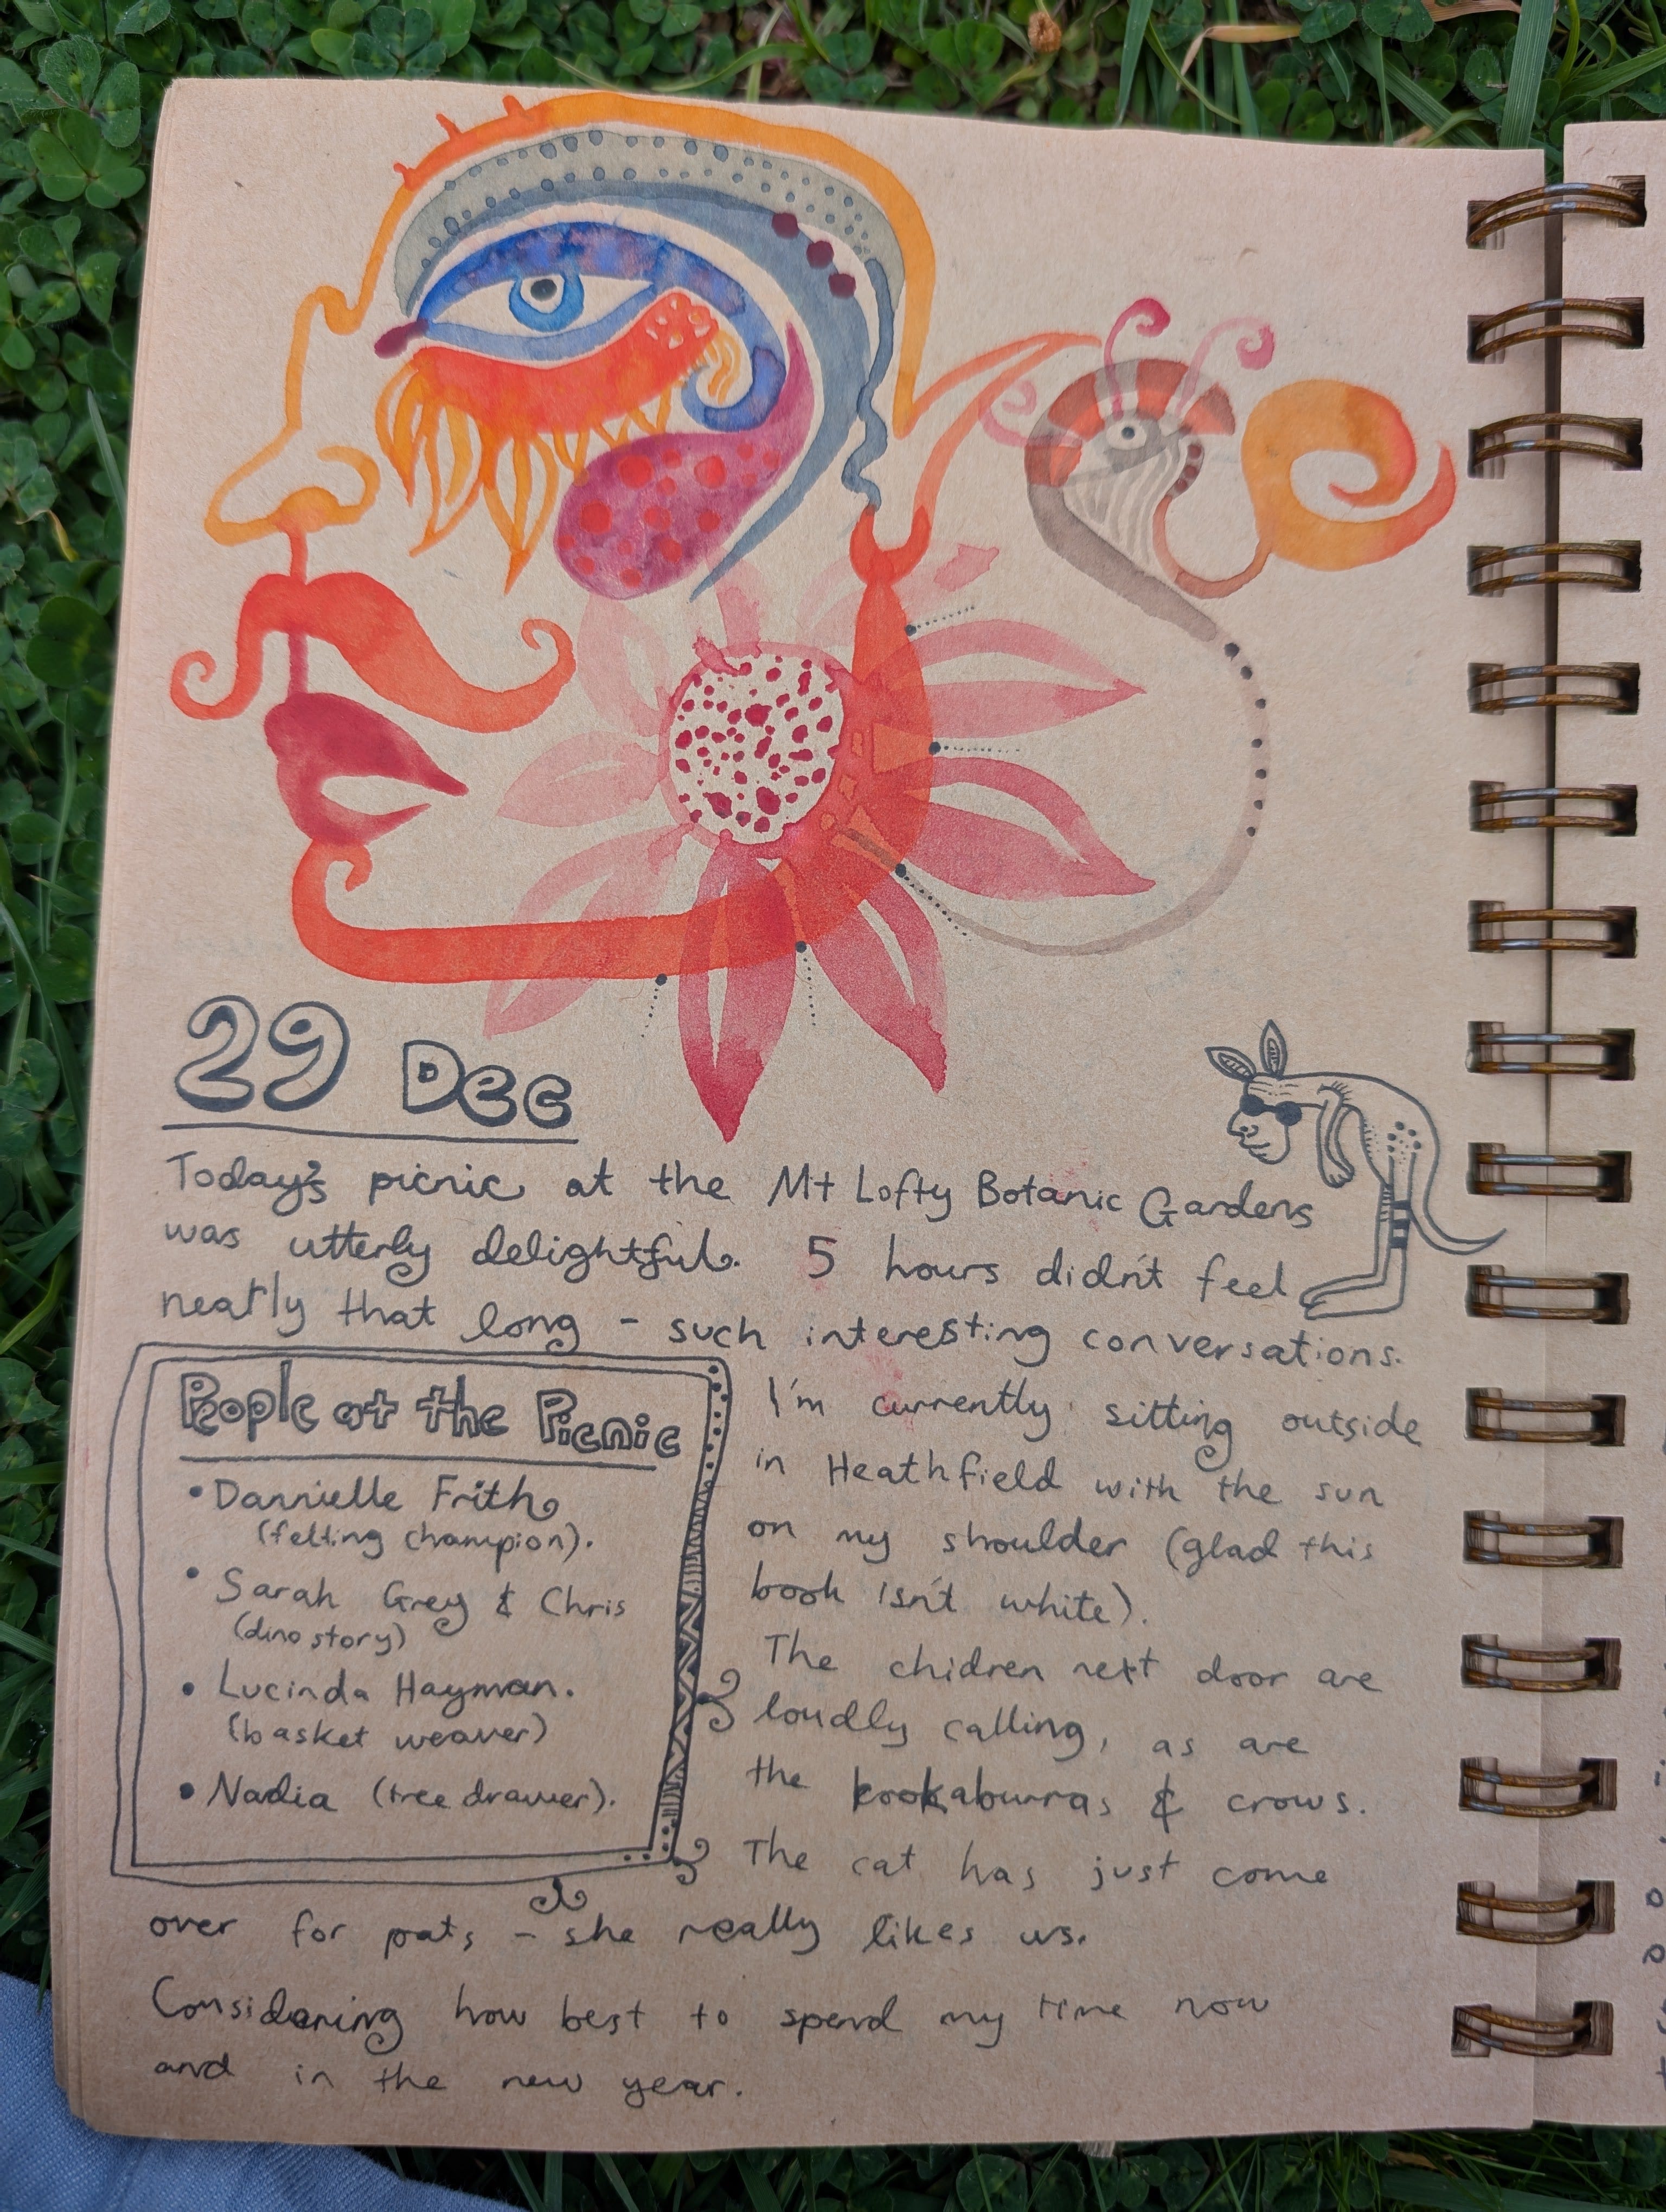 29 Dec
Today's picnic at the Mt Lofty Botanic Gardens
was utterly delightful. 5 hours didn't feel
nearly that long - such interesting conversations.
People at the Picnic
• Dannielle Frith
(felting champion).
• Sarah Grey & Chris
(dino story)
• Lucinda Hayman.
(basket weaver)
• Nadia (tree drawer).
I'm currently sitting outside
in Heathfield with the sun
on my shoulder (glad this
book isn't white).
The chidren next door are
loudly calling, as are
the kookaburras & crows.
The cat has just come
over for pats - she really likes us.
Considering how best to spend my time now
and in the new year.